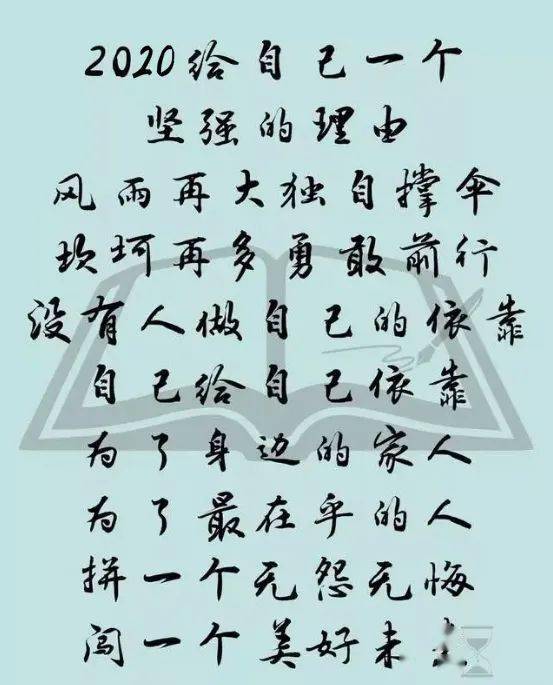 2020给自己一个
坚强的理由
风雨再大独自撑伞
坎坷再多勇敢前行
没有人做自己的依靠
自己给自己依靠
为了身边的家人
为了最在乎的人
拼一个无怨无悔
闯一个美好未